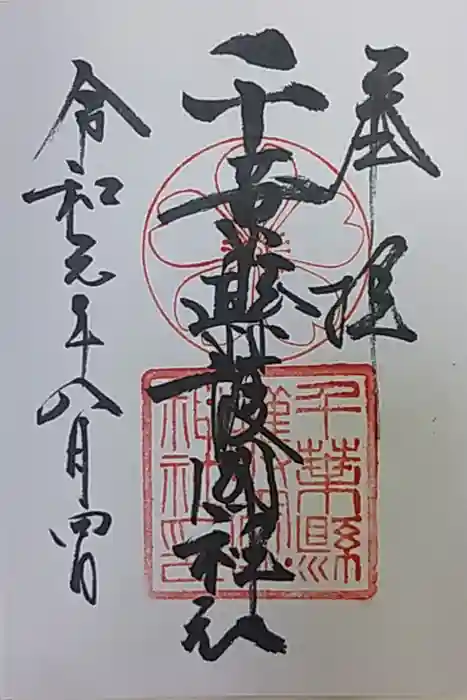 奉拝
千葉縣護國神社
千葉縣護國神社印
令和元年八月四日